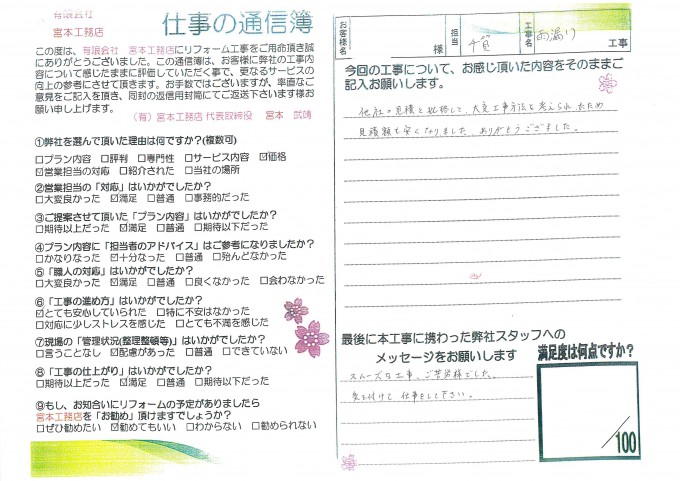 有限会社
宮本工務店
仕事の通信簿
この度は、有限会社 宮本工務店にリフォーム工事をご用命頂き誠
にありがとうございました。この通信簿は、お客様に弊社の工事内
容について感じたままに評価していただく事で、更なるサービスの
向上の参考にさせて頂きます。お手数ではございますが、率直なご
意見をご記入を頂き、同封の返信用封筒にてご返送下さいます様お
願い申し上げます。
(有)宮本工務店 代表取締役 宮本
①弊社を選んで頂いた理由は何ですか?(複数可)
□プラン内容 □評判 □専門性 □サービス内容 ☑価格
☑営業担当の対応 □紹介された □当社の場所
②営業担当の「対応」はいかがでしたか?
□大変良かった ☑満足 □普通 □事務的だった
③ご提案させて頂いた「プラン内容」はいかがでしたか?
□期待以上だった ☑満足 □普通 □期待以下だった
④プラン内容に「担当者のアドバイス」はご参考になりましたか?
□かなりなった ☑十分なった □普通 □殆んどなかった
⑤「職人の対応」はいかがでしたか?
□大変良かった ☑満足 □普通 □良くなかった □会わなかった
⑥「工事の進め方」はいかがでしたか?
☑とても安心していられた □特に不安はなかった
□対応に少しストレスを感じた □とても不満を感じた
⑦現場の「管理状況(整理整頓等)」はいかがでしたか?
□言うことなし ☑配慮があった □普通 □できていない
⑧「工事の仕上がり」はいかがでしたか?
□期待以上だった ☑満足 □普通 □期待以下だった
⑨もし、お知合いにリフォームの予定がありましたら
宮本工務店を「お勧め」頂けますでしょうか?
□ぜひ勧めたい ☑勧めてもいい □わからない □勧められない
お客様名 様 担当 工事名 雨漏り 工事
今回の工事について、お感じ頂いた内容をそのままご
記入お願いします。
他社の見積と比較して、大変工事方法を考えられたため
見積額も安くなりました。ありがとうございました。
最後に本工事に携わった弊社スタッフへの
メッセージをお願いします
スムーズな工事、ご苦労様でした。
気を付けて仕事をして下さい。
満足度は何点ですか?
/100